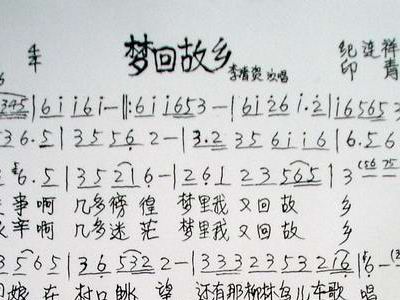 梦回故乡
李青燕 演唱
纪连祥
印青
345 | 6 i i 6 i — ‖: 6 i i 6 5 3 — | 6 i 2 6 i . 2 | i 6 5 6 5 3
3 6 . 5 | 3 5 5 6 2 — | 3 . 2 3 5 6 i i 6 | 6 . 5 6
6 . 5 | 3 5 2 1 6 — | 2 6 1 2 3 5 6 5 | 3 (56 75
事啊 几多徬徨 梦里我又回故 乡
辛啊 几多迷茫 梦里我又回故 乡
3 5 6 5 | 3 6 5 3 2 2 — | 3 3 3 2 3 5 3 2 1 6 | 6 —
娘在 村口眺 望 还有那柳林鸟儿在歌 唱